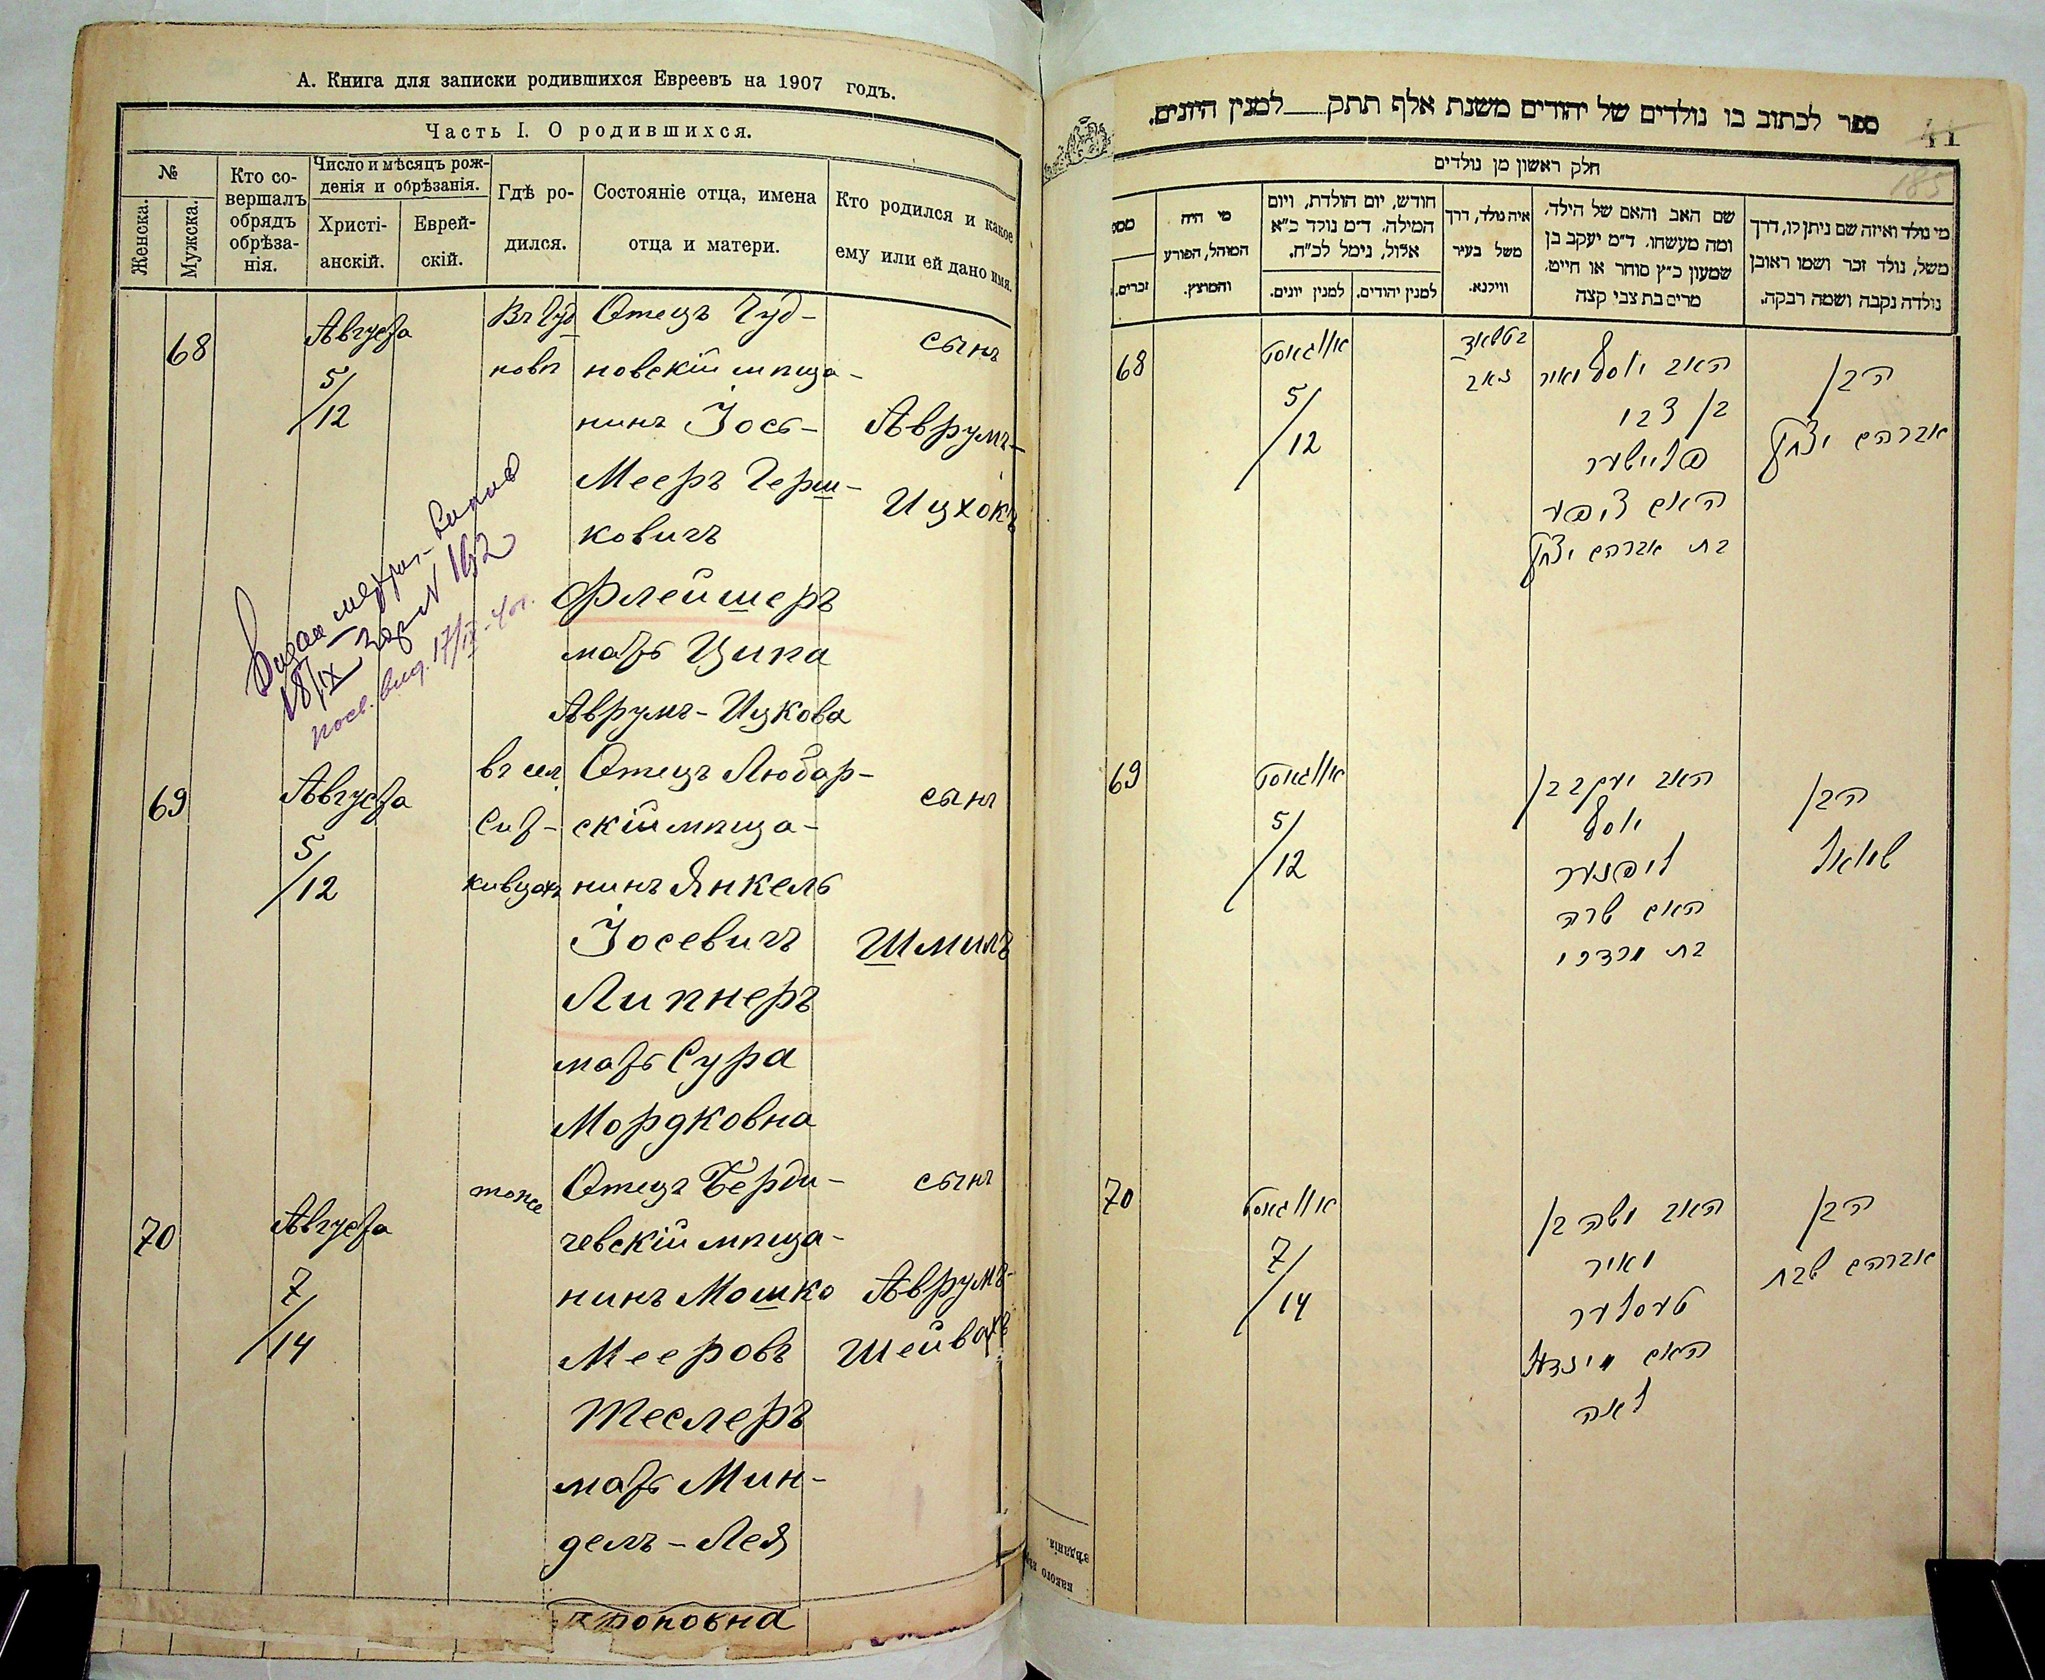 А. Книга для записки родившихся Евреевъ на 1907 годъ.
Часть I. О родившихся.
№
Женска.
Мужска.
Кто со-
вершалъ
обрядъ
обрѣза-
нія.
Число и мѣсяцъ рож-
денія и обрѣзанія.
Христі-
анскій.
Еврей-
скій.
Гдѣ ро-
дился.
Состояніе отца, имена
отца и матери.
Кто родился и какое
ему или ей дано имя.
68
Августа
5/12
Въ Чуд
новѣ
Отецъ Чуд-
новскій мѣща-
нинъ Іось-
Мееръ Герш-
ковичъ
Флейшеръ
мать Ципа
Аврумъ-Ицкова
сынъ
Аврумъ-
Ицхокъ
18/IX
N 162
17/IX
69
Августа
5/12
въ сел.
Сит-
кивцахъ
Отецъ Любар-
скій мѣща-
нинъ Янкель
Іосевичъ
Липнеръ
мать Сура
Мордковна
сынъ
Шмилъ
70
Августа
7/14
тоже
Отецъ Берди-
чевскій мѣща-
нинъ Мошко
Мееровъ
Теслеръ
мать Мин-
дель-Лея
сынъ
Аврумъ-
Шейвахъ
ספר לכתוב בו נולדים של יהודים משנת אלף תתק למנין היונים.
41
185
חלק ראשון מן נולדים
זכרים.
מי היה
המוהל, הפורע
והמוצץ.
חודש, יום הולדת, ויום
המילה. ד״מ נולד כ״א
אלול, נימל לכ״ח.
למנין יונים.
למנין יהודים.
איה נולד, דרך
משל בעיר
ווילנא.
שם האב והאם של הילד,
ומה מעשהו. ד״מ יעקב בן
שמעון כ״ץ סוחר או חייט.
מרים בת צבי קצה
מי נולד ואיזה שם ניתן לו, דרך
משל, נולד זכר ושמו ראובן
נולדה נקבה ושמה רבקה.
68
אווגאסט
5/12
האב יוסף מאיר
בן צבי
פליישער
האם ציפע
בת אברהם יצחק
הבן
אברהם יצחק
69
אווגאסט
5/12
האב יעקב בן
יוסף
ליפנער
האם שרה
בת מרדכי
הבן
שמואל
70
אווגאסט
7/14
האב משה בן
מאיר
טעסלער
האם מינדעל
לאה
הבן
אברהם שבח